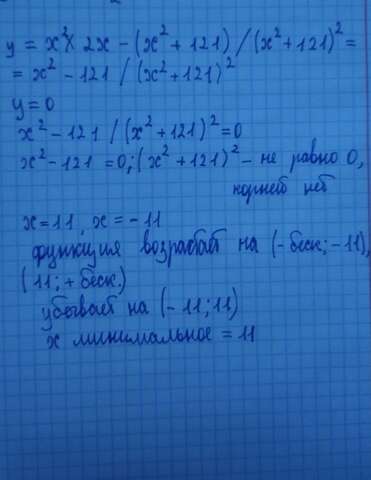 y = x²x 2x - (x² + 121) / (x² + 121)² =
= x² - 121 / (x² + 121)²
y = 0
x² - 121 / (x² + 121)² = 0
x² - 121 = 0; (x² + 121)² - не равно 0,
корней нет
x = 11, x = - 11
функция возрастает на (- беск; - 11),
(11; + беск.)
убывает на (- 11; 11)
x минимальное = 11